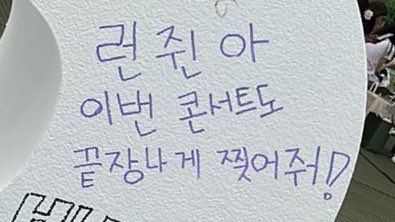 런쥔아
이번 콘서트도
끝장나게 찢어줘!